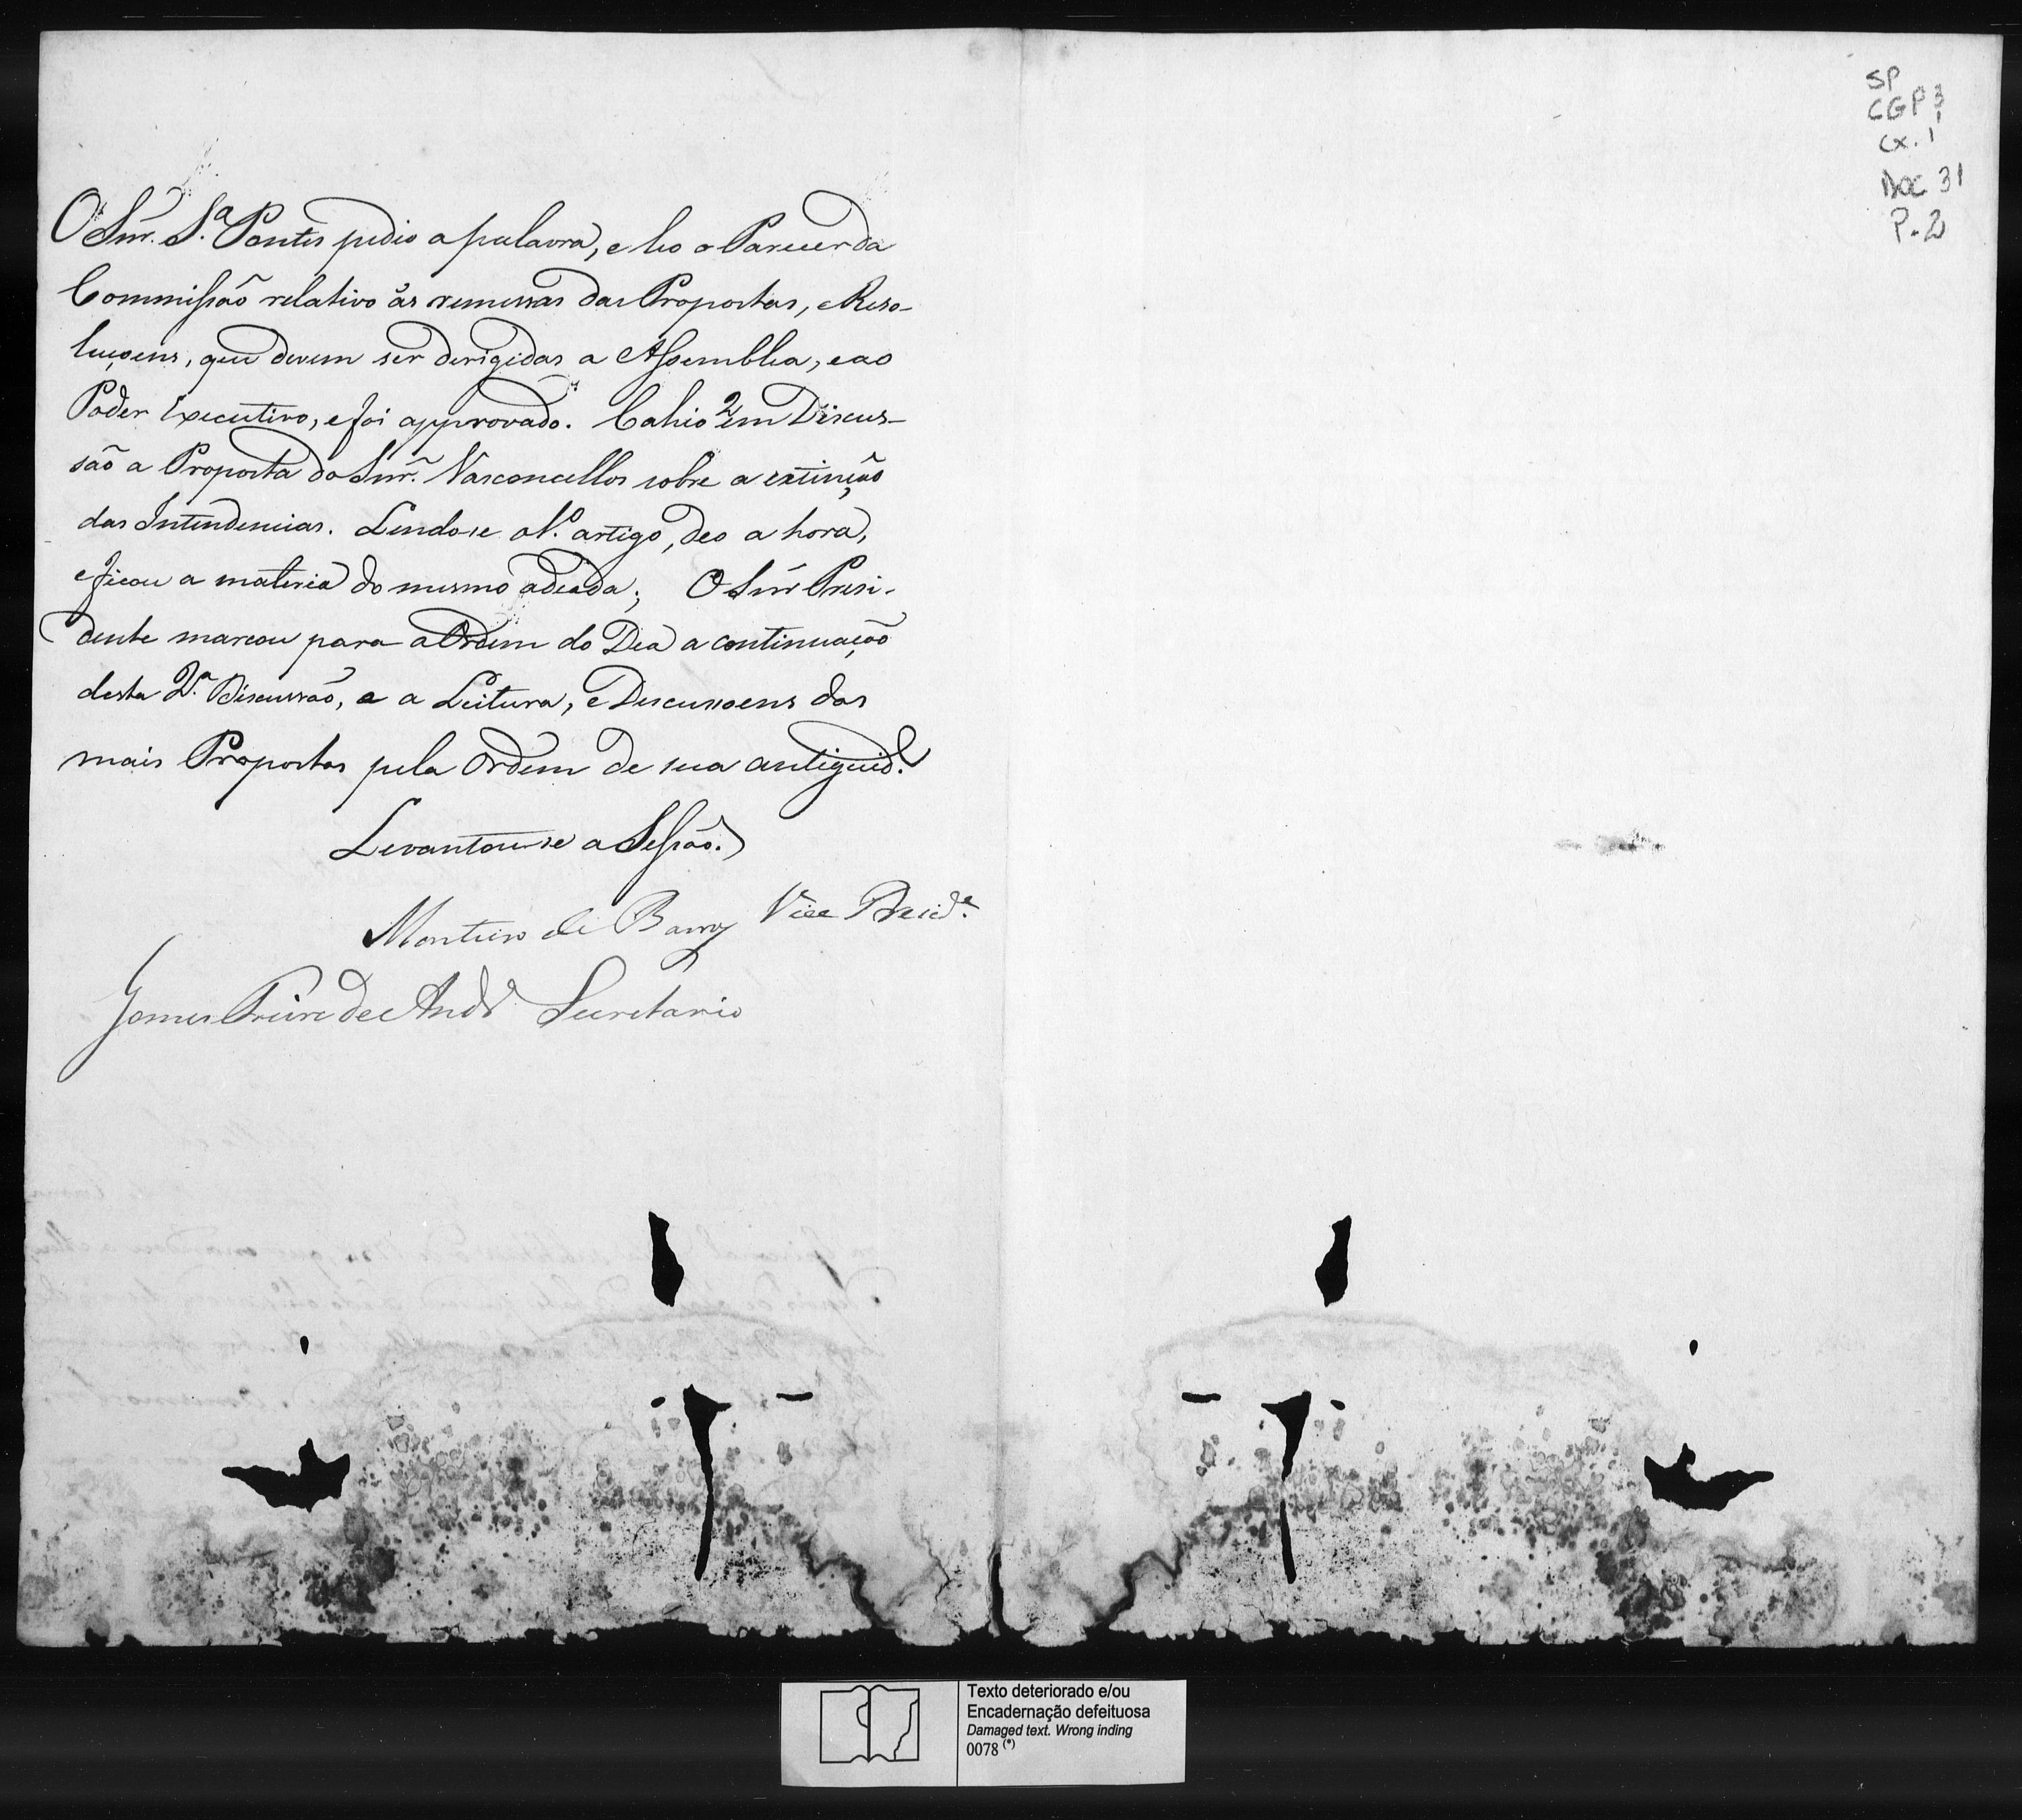 O Snr. S.ª Pontes pedio a palavra, e leo o Parecer da
Commissão relativo ás remessas das Propostas, e Reso-
luçoens, que devem ser derigidas a Assemblea, e ao
Poder Executivo, e foi approvado. Cahio em 2ª Discus-
são a Proposta do Snr. Vasconcellos sobre a extinção
das Intendencias. Lendo-se o 1.º artigo, deo a hora,
e ficou a materia do mesmo adeada; O Snr Presi-
dente marcou para a Ordem do Dea a continuação
desta 2.ª Discussão, e a Leitura, e Discussoens das
mais Propostas pela Ordem de sua antiguid.e
Levantou-se a Sessão.
Monteiro de Barros Vice Presid.e
Gomes Freire de Andr.e Secretario
SP
CGP 3
Cx. 1
DOC 31
P. 2
Texto deteriorado e/ou
Encadernação defeituosa
Damaged text. Wrong inding
0078 (*)